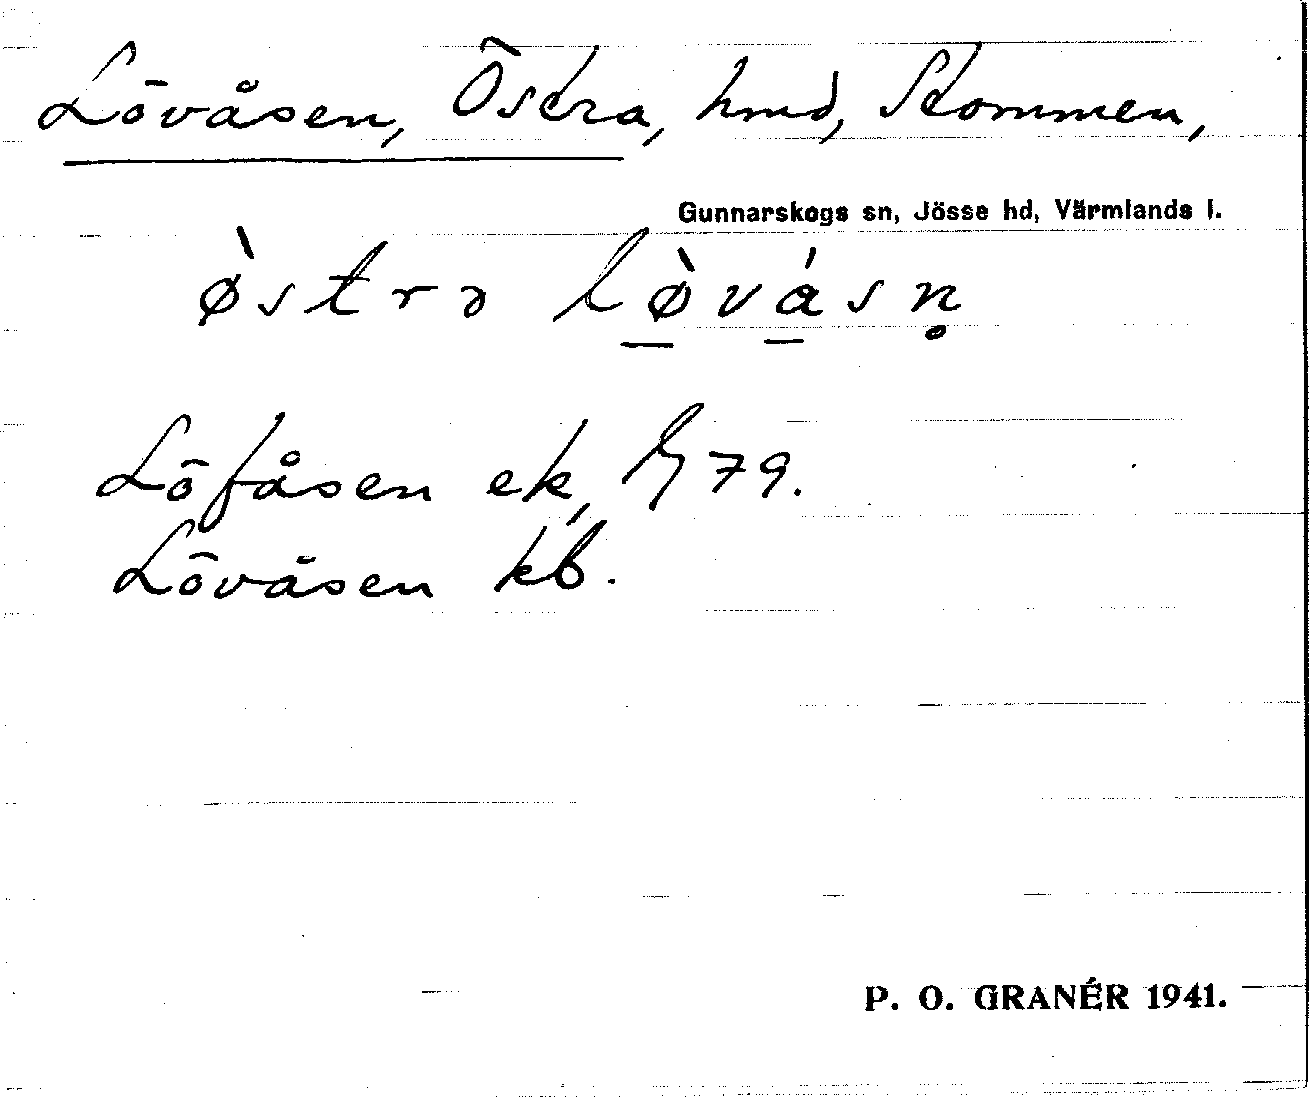 Lövåsen, Östra, hmd, Stommen,
Gunnarskogs sn, Jösse hd, Värmlands l.
ø̀strə lø̱̀vá̱sn̥
Löfåsen ek, 79.
Lövåsen kb.
P. O. GRANÉR 1941.